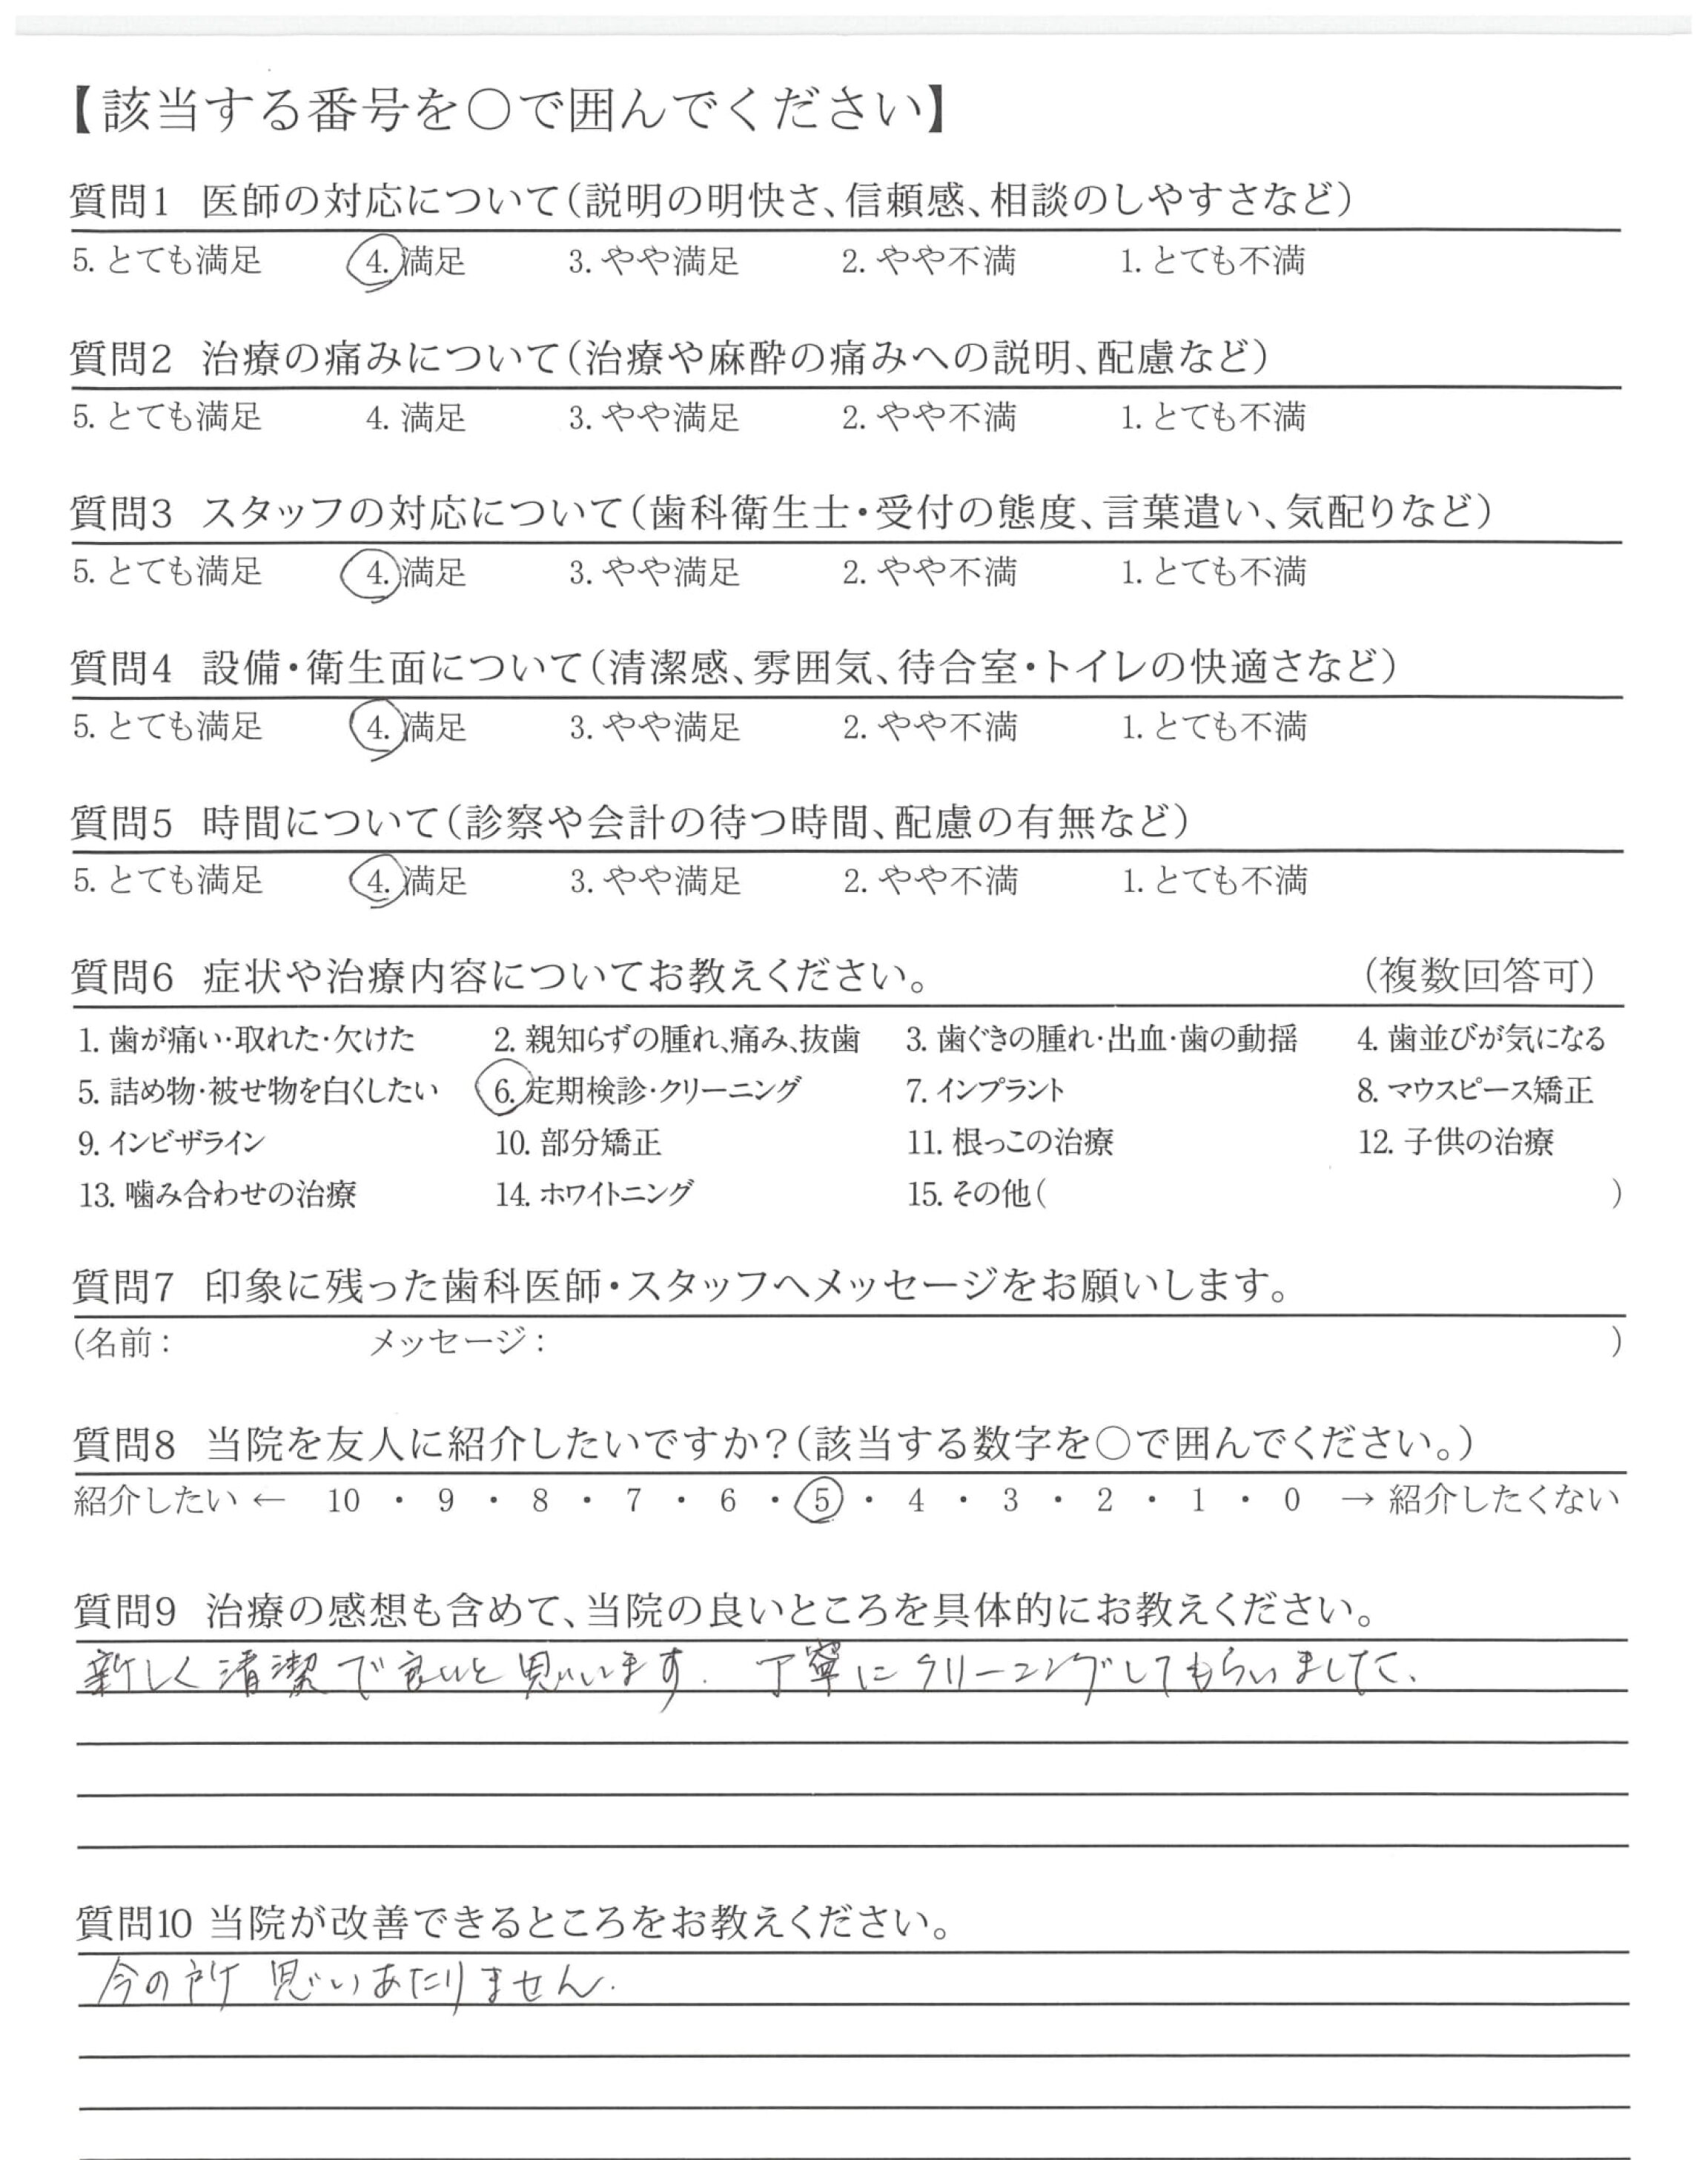 【該当する番号を○で囲んでください】
質問1 医師の対応について(説明の明快さ、信頼感、相談のしやすさなど)
5. とても満足 4. 満足 3. やや満足 2. やや不満 1. とても不満
質問2 治療の痛みについて(治療や麻酔の痛みへの説明、配慮など)
5. とても満足 4. 満足 3. やや満足 2. やや不満 1. とても不満
質問3 スタッフの対応について(歯科衛生士・受付の態度、言葉遣い、気配りなど)
5. とても満足 4. 満足 3. やや満足 2. やや不満 1. とても不満
質問4 設備・衛生面について(清潔感、雰囲気、待合室・トイレの快適さなど)
5. とても満足 4. 満足 3. やや満足 2. やや不満 1. とても不満
質問5 時間について(診察や会計の待つ時間、配慮の有無など)
5. とても満足 4. 満足 3. やや満足 2. やや不満 1. とても不満
質問6 症状や治療内容についてお教えください。 (複数回答可)
1. 歯が痛い・取れた・欠けた 2. 親知らずの腫れ、痛み、抜歯 3. 歯ぐきの腫れ・出血・歯の動揺 4. 歯並びが気になる
5. 詰め物・被せ物を白くしたい 6. 定期検診・クリーニング 7. インプラント 8. マウスピース矯正
9. インビザライン 10. 部分矯正 11. 根っこの治療 12. 子供の治療
13. 噛み合わせの治療 14. ホワイトニング 15. その他( )
質問7 印象に残った歯科医師・スタッフへメッセージをお願いします。
(名前: メッセージ: )
質問8 当院を友人に紹介したいですか?(該当する数字を○で囲んでください。)
紹介したい ← 10 ・ 9 ・ 8 ・ 7 ・ 6 ・ 5 ・ 4 ・ 3 ・ 2 ・ 1 ・ 0 → 紹介したくない
質問9 治療の感想も含めて、当院の良いところを具体的にお教えください。
新しく清潔で良いと思います. 丁寧にクリーニングしてもらいました、
質問10 当院が改善できるところをお教えください。
今の所 思いあたりません.